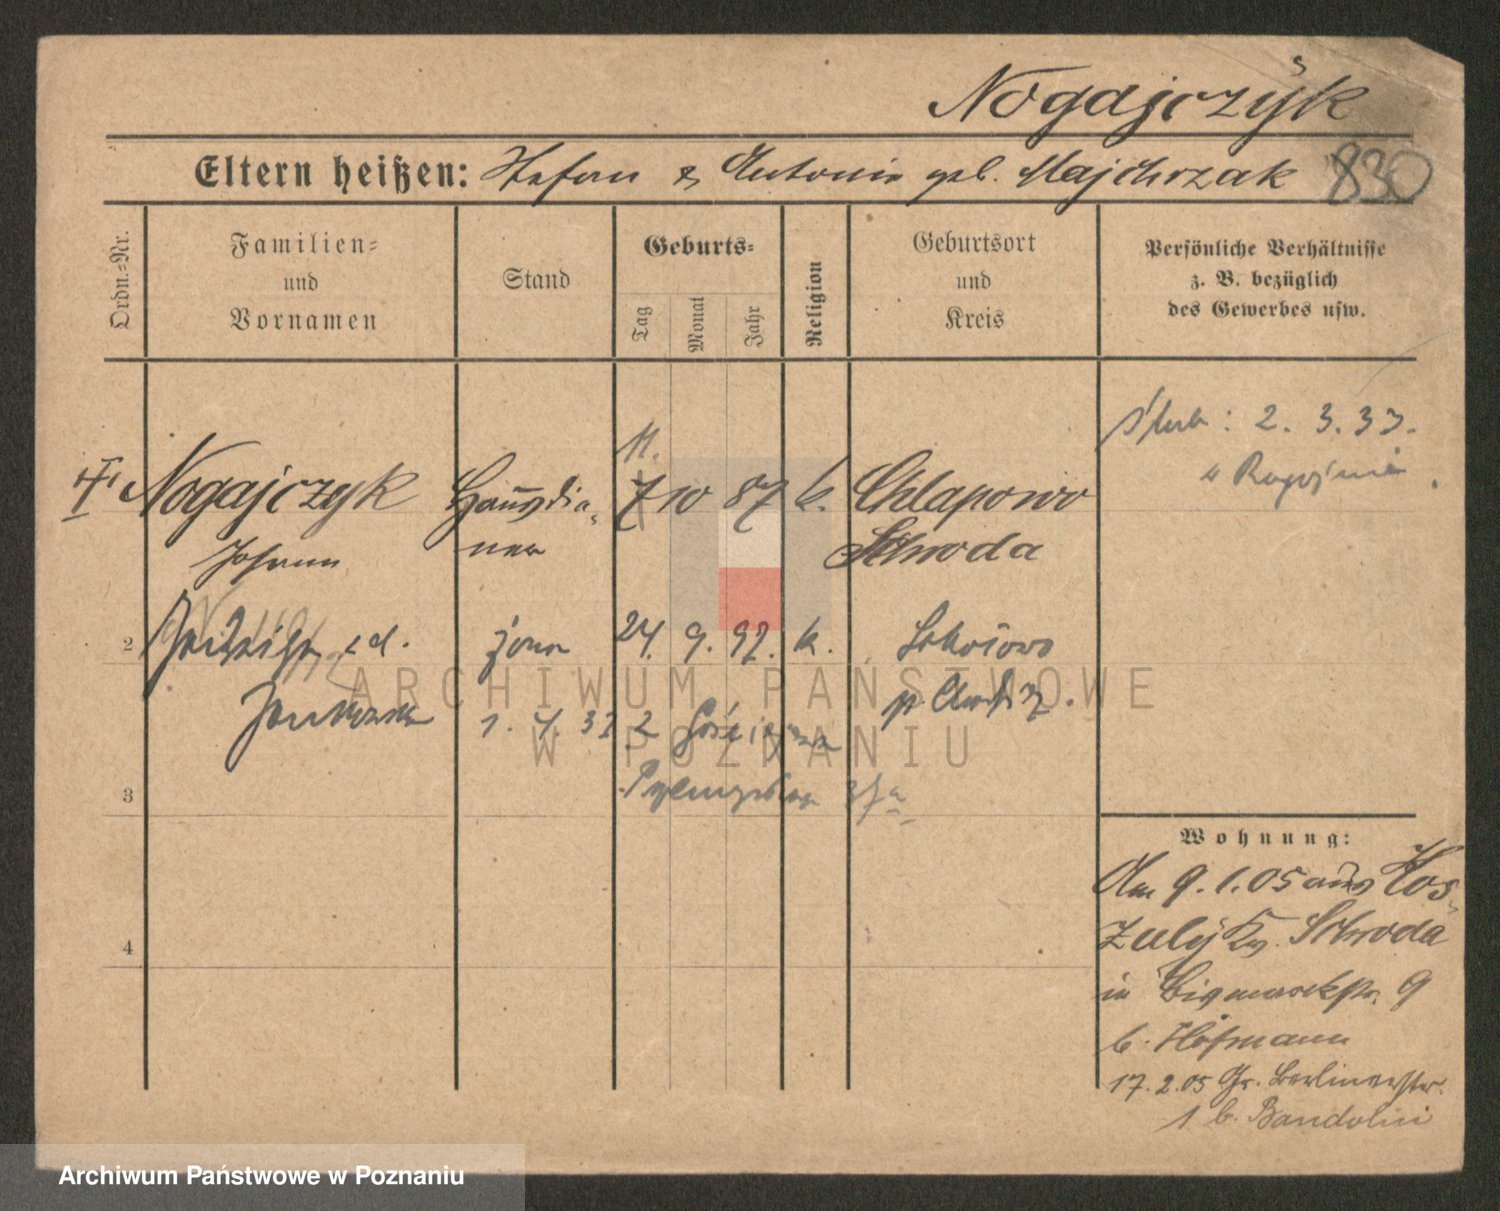 Nogajczyk
Eltern heißen: Stefan & Antonie geb. Majchrzak 830
Ordn.-Nr.
Familien-
und
Vornamen
Stand
Geburts-
Tag
Monat
Jahr
Religion
Geburtsort
und
Kreis
Persönliche Verhältnisse
z. B. bezüglich
des Gewerbes usw.
ślub: 2. 3. 33.
w
11.
Nogajczyk Hausdie- 7 10 87 k. Chlapowo
Johann ner Schroda
2 Jadwiga z d. żona 24. 9. 92. k.
1. 4. 32
3
4
Wohnung:
Am 9.1.05 aus Kos-
zuly Kr. Schroda
in Bismarckstr. 9
b. Hofmann
17.2.05 Gr. Berlinerstr.
1 b. Bandolin
ARCHIWUM PAŃSTWOWE
W POZNANIU
Archiwum Państwowe w Poznaniu